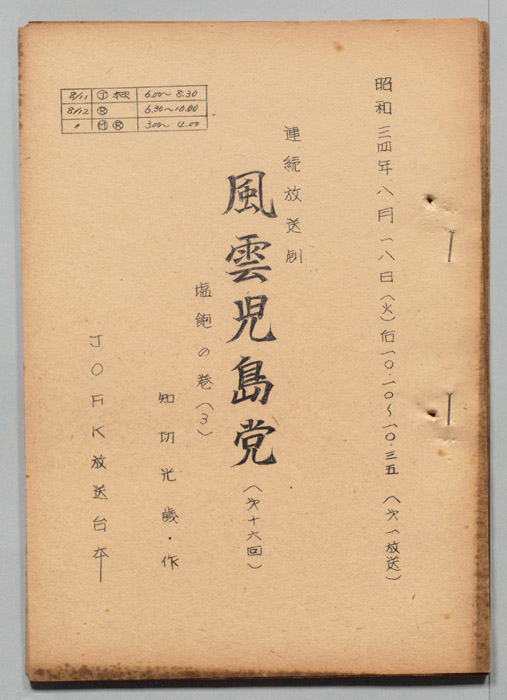 昭和三四年八月一八日(火)后一〇.一〇〜一〇.三五(第一放送)
連続放送劇
風雲児島党
(第十六回)
塩飽の巻(3)
知切光歳・作
JOFK放送台本
8/11 Ⓣ 本決 6.00〜8.30
8/12 Ⓡ 6.30〜10.00
〃 Ⓜ Ⓡ 3.00〜4.00